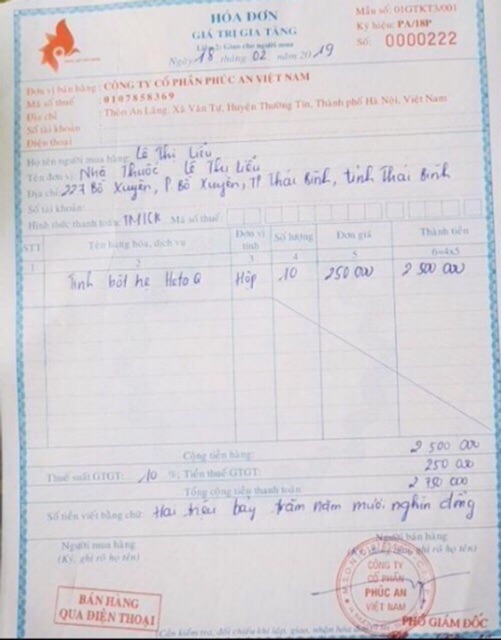 HÓA ĐƠN
GIÁ TRỊ GIA TĂNG
Liên 2: Giao cho người mua
Ngày 18 tháng 02 năm 2019
Mẫu số: 01GTKT3/001
Ký hiệu: PA/18P
Số: 0000222
Đơn vị bán hàng: CÔNG TY CỔ PHẦN PHÚC AN VIỆT NAM
Mã số thuế : 0107858369
Địa chỉ : Thôn An Lãng, Xã Văn Tự, Huyện Thường Tín, Thành phố Hà Nội, Việt Nam
Số tài khoản :
Điện thoại :
Họ tên người mua hàng: Lê Thị Liễu
Tên đơn vị: Nhà Thuốc Lê Thị Liễu
Địa chỉ: 227 Bồ Xuyên, P Bồ Xuyên, TP Thái Bình, tỉnh Thái Bình
Số tài khoản:
Hình thức thanh toán: TM/CK Mã số thuế:
STT Tên hàng hóa, dịch vụ Đơn vị tính Số lượng Đơn giá Thành tiền
1 2 3 4 5 6=4x5
Tinh bột hẹ HotoQ Hộp 10 250 000 2 500 000
Cộng tiền hàng: 2 500 000
Thuế suất GTGT: 10 %; Tiền thuế GTGT: 250 000
Tổng cộng tiền thanh toán 2 750 000
Số tiền viết bằng chữ: Hai triệu bảy trăm năm mươi nghìn đồng
Người mua hàng Người bán hàng
(Ký, ghi rõ họ tên)
BÁN HÀNG
QUA ĐIỆN THOẠI
CÔNG TY
CỔ PHẦN
PHÚC AN
VIỆT NAM
PHÓ GIÁM ĐỐC
(Cần kiểm tra, đối chiếu khi lập, giao, nhận hóa đơn)